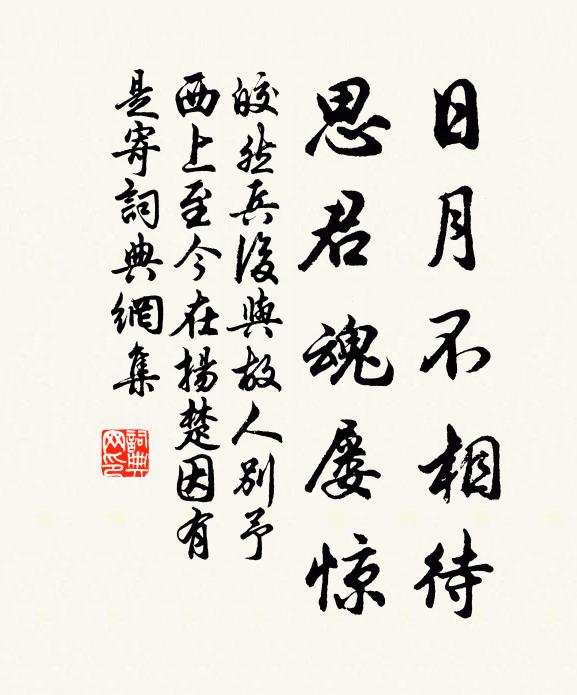 日月不相待
思君魂屡惊
皎然兵後與故人別予
西上至今在揚楚因有
是寄詞典網集
詞典
网印